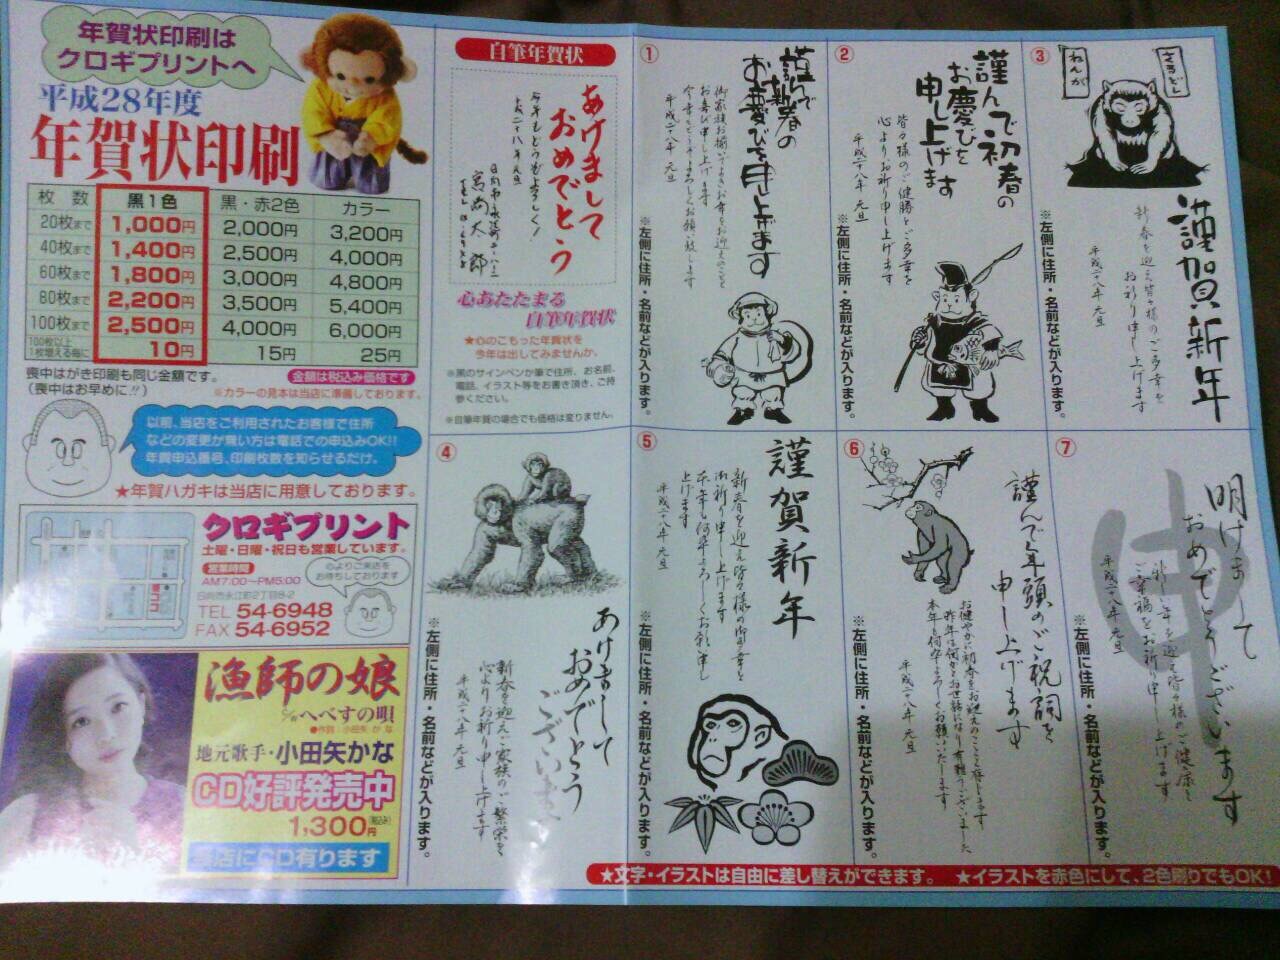 年賀状印刷は
クロギプリントへ
平成28年度
年賀状印刷
枚数 黒1色 黒・赤2色 カラー
20枚まで 1,000円 2,000円 3,200円
40枚まで 1,400円 2,500円 4,000円
60枚まで 1,800円 3,000円 4,800円
80枚まで 2,200円 3,500円 5,400円
100枚まで 2,500円 4,000円 6,000円
100枚以上
1枚増える毎に 10円 15円 25円
喪中はがき印刷も同じ金額です。
(喪中はお早めに!!)
金額は税込み価格です
※カラーの見本は当店に準備しております。
以前、当店をご利用されたお客様で住所
などの変更が無い方は電話での申込みOK!!
年賀申込番号、印刷枚数を知らせるだけ。
★年賀ハガキは当店に用意しております。
クロギプリント
土曜・日曜・祝日も営業しています。
営業時間
AM7:00~PM5:00
日向市永江町2丁目8-2
TEL 54-6948
FAX 54-6952
心よりご来店を
お待ちしております
ココ
漁師の娘
へべすの唄
●作詞:小田矢かな
地元歌手・小田矢かな
CD好評発売中
1,300円(税込み)
当店にCD有ります
自筆年賀状
あけまして
おめでとう
今年もどうぞよろしく!
平成二十八年元旦
心あたたまる
自筆年賀状
★心のこもった年賀状を
今年は出してみませんか。
※黒のサインペンか筆で住所、お名前、
電話、イラスト等をお書き頂き、ご持
参ください。
※自筆年賀の場合でも価格は変りません。
①
謹んで
新春の
お慶びを
申し上げます
御家族お揃いでよきお年をお迎えのことと
お喜び申し上げます
今年もどうぞよろしくお願い致します
平成二十八年 元旦
※左側に住所・名前などが入ります。
②
謹んで初春の
お慶びを
申し上げます
皆々様のご健勝とご多幸を
心よりお祈り申し上げます
平成二十八年 元旦
※左側に住所・名前などが入ります。
③
さるどし
ねんが
謹賀新年
新春を迎え皆々様のご多幸を
お祈り申し上げます
平成二十八年 元旦
※左側に住所・名前などが入ります。
④
あけまして
おめでとう
ございます
新春を迎えご家族のご繁栄を
心よりお祈り申し上げます
平成二十八年 元旦
※左側に住所・名前などが入ります。
⑤
謹賀新年
新春を迎え皆々様の御多幸を
御祈り申し上げます
本年も何卒よろしくお願い申し
上げます
平成二十八年 元旦
※左側に住所・名前などが入ります。
⑥
謹んで年頭のご祝詞を
申し上げます
お健やかに初春をお迎えのことと存じます
昨年は何かとお世話になり有難うございました
本年も何卒よろしくお願いいたします
平成二十八年 元旦
※左側に住所・名前などが入ります。
⑦
申
明けまして
おめでとうございます
新しい年を迎え皆々様のご健康と
ご幸福をお祈り申し上げます
平成二十八年 元旦
※左側に住所・名前などが入ります。
★文字・イラストは自由に差し替えができます。 ★イラストを赤色にして、2色刷りでもOK!